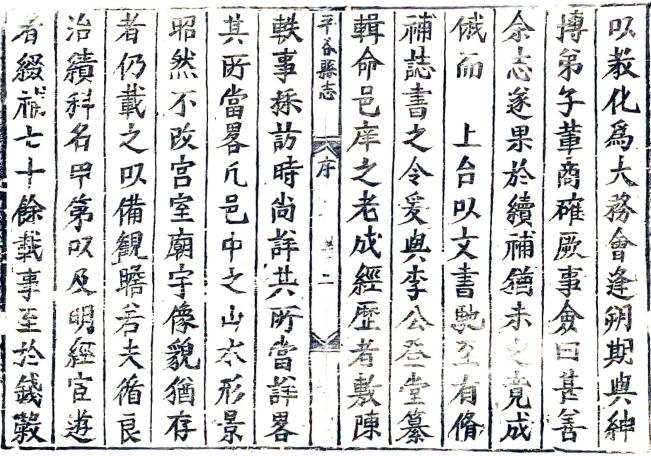 以教化爲大務會逢朔期與紳
博弟子輩商確厥事僉曰甚善
余志遂果於續補猶未之竟成
俄而　上台以文書馳至有脩
補誌書之令爰與李公登堂纂
輯命邑庠之老成經歷者敷陳
平谷縣志　序　二
軼事採訪時尚詳其所當詳畧
其所當畧凢邑中之山水形景
昭然不改宫室廟宇像貌猶存
者仍載之以備觀瞻若夫循良
治績科名甲第以及明經宦遊
者綴補七十餘載事至於錢糓